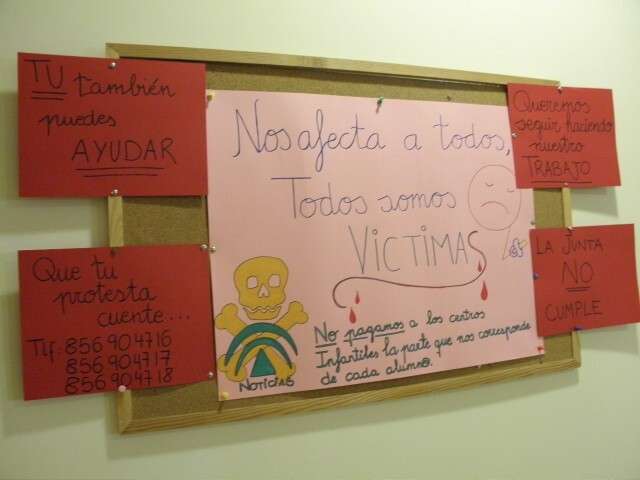 TU también
puedes
AYUDAR
Que tu
protesta
cuente....
Tlf: 856 904716
856 904717
856 904718
Nos afecta a todos,
Todos somos
VICTIMAS
No pagamos a los centros
Infantiles la parte que nos corresponde
de cada alumno.
NOTICIAS
Queremos
seguir haciendo
nuestro
TRABAJO
LA JUNTA
NO
CUMPLE